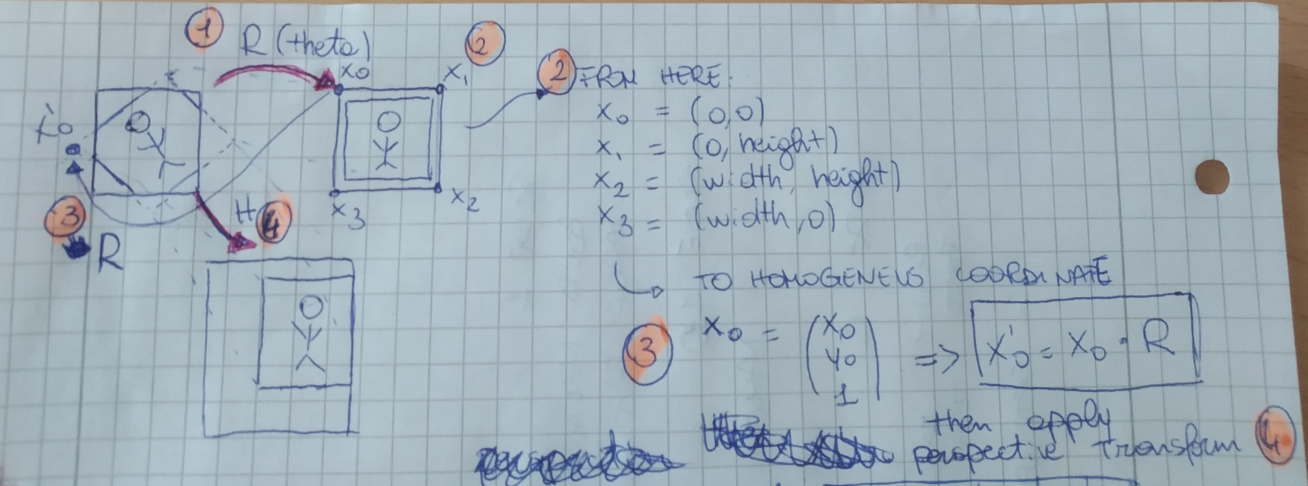 1
R (theta)
x₀
x₁
2
2 FROM HERE:
x₀ = (0,0)
x₁ = (0, height)
x₂ = (width, height)
x₃ = (width, 0)
x₀'
x₃
x₂
3
R
H 4
TO HOMOGENEUS COORDINATE
3
x₀ = (x₀
y₀
1) => x₀' = x₀ · R
then apply
perspective transform 4